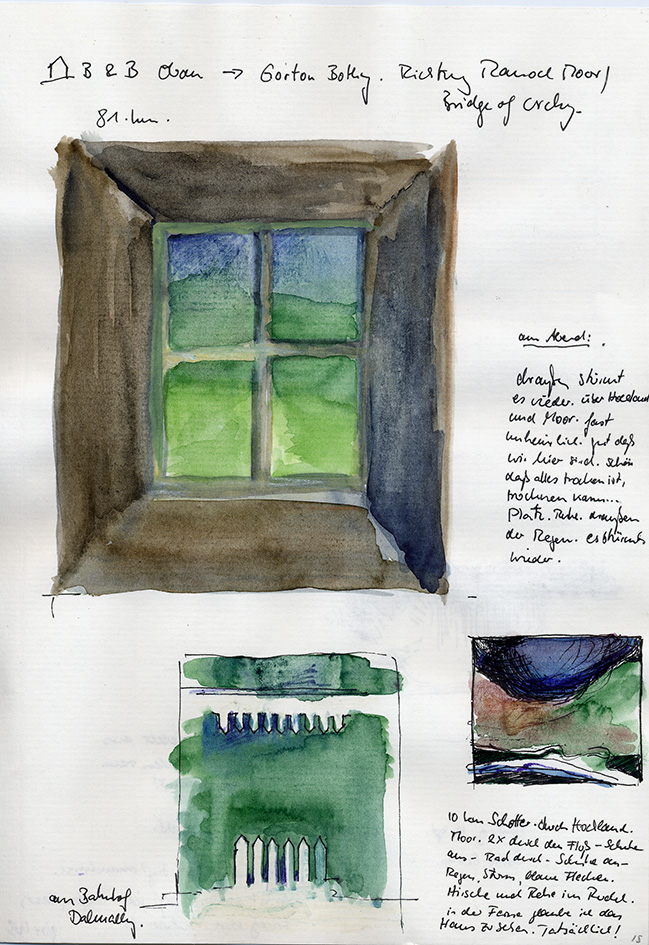 B & B Oban → Gorton Bothy. Richtung Rannoch Moor/
Bridge of Orchy.
81. km.
am Abend:.
draußen stürmt
es wieder. über Hochland
und Moor. fast
unheimlich. gut daß
wir hier sind. schön
daß alles trocken ist,
trocknen kann...
Platz. Ruhe. draußen
der Regen. es stürmt
wieder.
10 km Schotter. durch Hochland.
Moor. 2x durch den Fluß - Schuhe
aus - Rad durch - Schuhe an -
Regen, Sturm, blaue Flecken.
Hirsche und Rehe im Rudel.
in der Ferne glaube ich das
Haus zu sehen. Tatsächlich!
am Bahnhof
Dalmally.